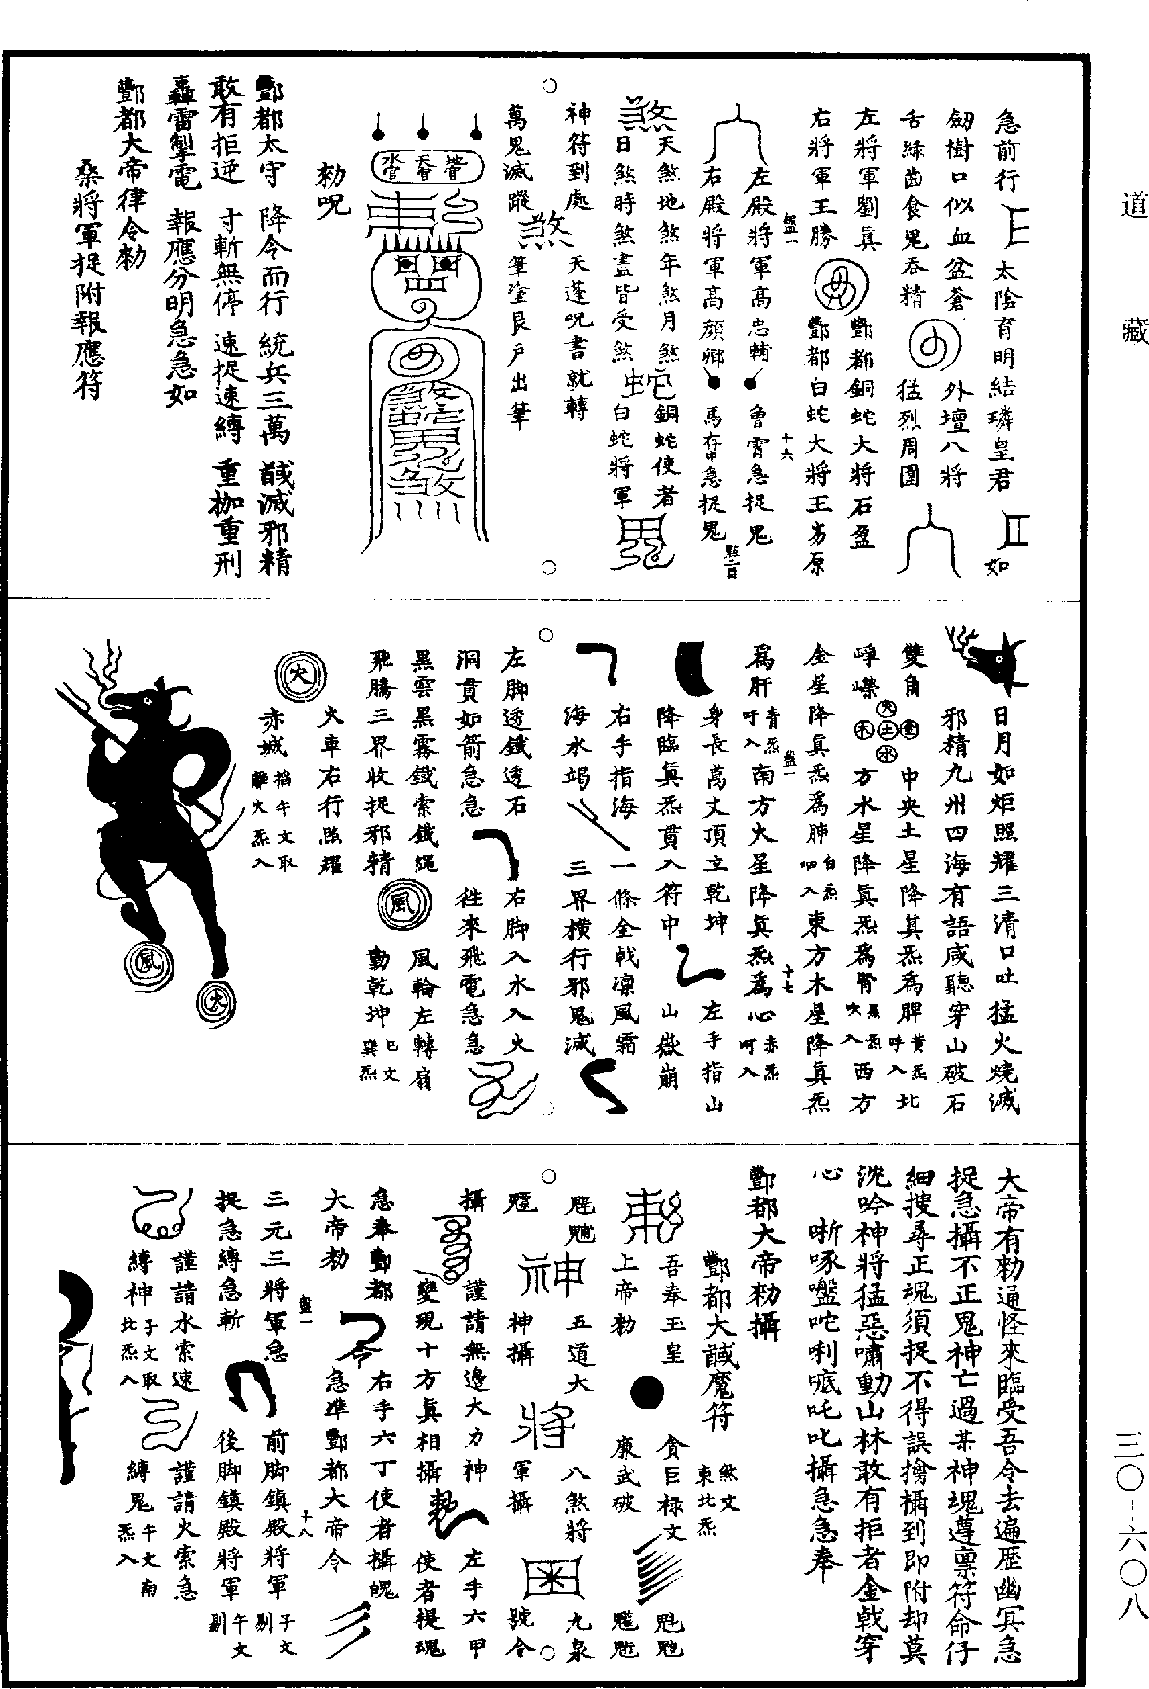 道藏
三〇-六〇八
急前行
太陰育明結璘皇君
如
劒樹口似血盆蒼
外壇八將
舌綠齒食鬼吞精
猛烈周圍
左將軍劉真
酆都銅蛇大將石盈
右將軍王勝
酆都白蛇大將王
原
左殿將軍高忠輔
急捉鬼
右殿將軍高顔卿
急捉鬼
天煞地煞年煞月煞
銅蛇使者
日煞時煞盡皆受煞
白蛇將軍
神符到處
天蓬呪書就轉
萬鬼滅蹤
筆塗艮戶出筆
煞
煞
鬼
敕呪
酆都太守 降令而行 統兵三萬 馘滅邪精
敢有拒逆 寸斬無停 速捉速縛 重枷重刑
轟雷掣電 報應分明急急如
酆都大帝律令勑
桑將軍捉附報應符
日月如炬照耀三清口吐猛火燒滅
邪精九州四海有語咸聽穿山破石
雙角
中央土星降真炁爲脾黃炁呼入北
崢嶸
火土金木水
方水星降真炁爲腎黑炁吹入西方
金星降真炁爲肺白炁呬入東方木星降真炁
爲肝青炁吁入南方火星降真炁爲心赤炁呵入
身長萬丈頂立乾坤
左手指山
降臨真炁貫入符中
山嶽崩
右手指海
一條金戟凜風霜
海水竭
三界橫行邪鬼滅
左脚透鐵透石
右脚入水入火
洞貫如箭急急
往來飛電急急
黑雲黑霧鐵索鐵繩
風輪左轉扇
飛騰三界收捉邪精
動乾坤巳文巽炁
風
火車右行照耀
赤城掐午文取離火炁入
火
風
火
大帝有勑通怪來臨受吾令去遍歷幽冥急
捉急攝不正鬼神亡過某神魂遵禀符命仔
細搜尋正魂須捉不得誤擒攝到即附却莫
沈吟神將猛惡嘯動山林敢有拒者金戟穿
心
攝急急奉
酆都大帝勑攝
酆都大馘魔符
吾奉玉皇
上帝勑
貪巨祿文
廉武破
煞文
東北炁
五道大
神攝
八煞將
軍攝
九泉
號令
神
將
攝
謹請無邊大力神
左手六甲
變現十方真相攝
使者捉魂
急奉酆都
右手六丁使者攝魄
大帝勑
急準酆都大帝令
三元三將軍急
前脚鎮殿將軍子文剔
捉急縛急斬
後脚鎮殿將軍午文剔
謹請水索速
謹請火索急
縛神子文取北炁入
縛鬼午文南炁入